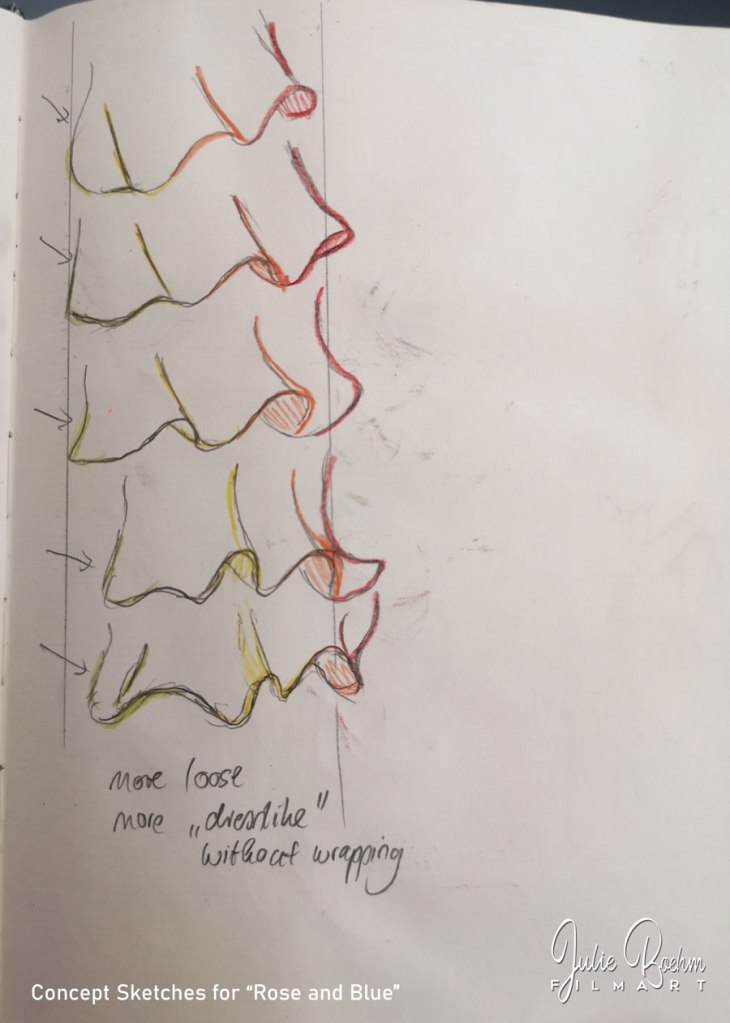 more loose
more „dresslike"
without wrapping
Concept Sketches for “Rose and Blue”
Julie Boehm
FILMART